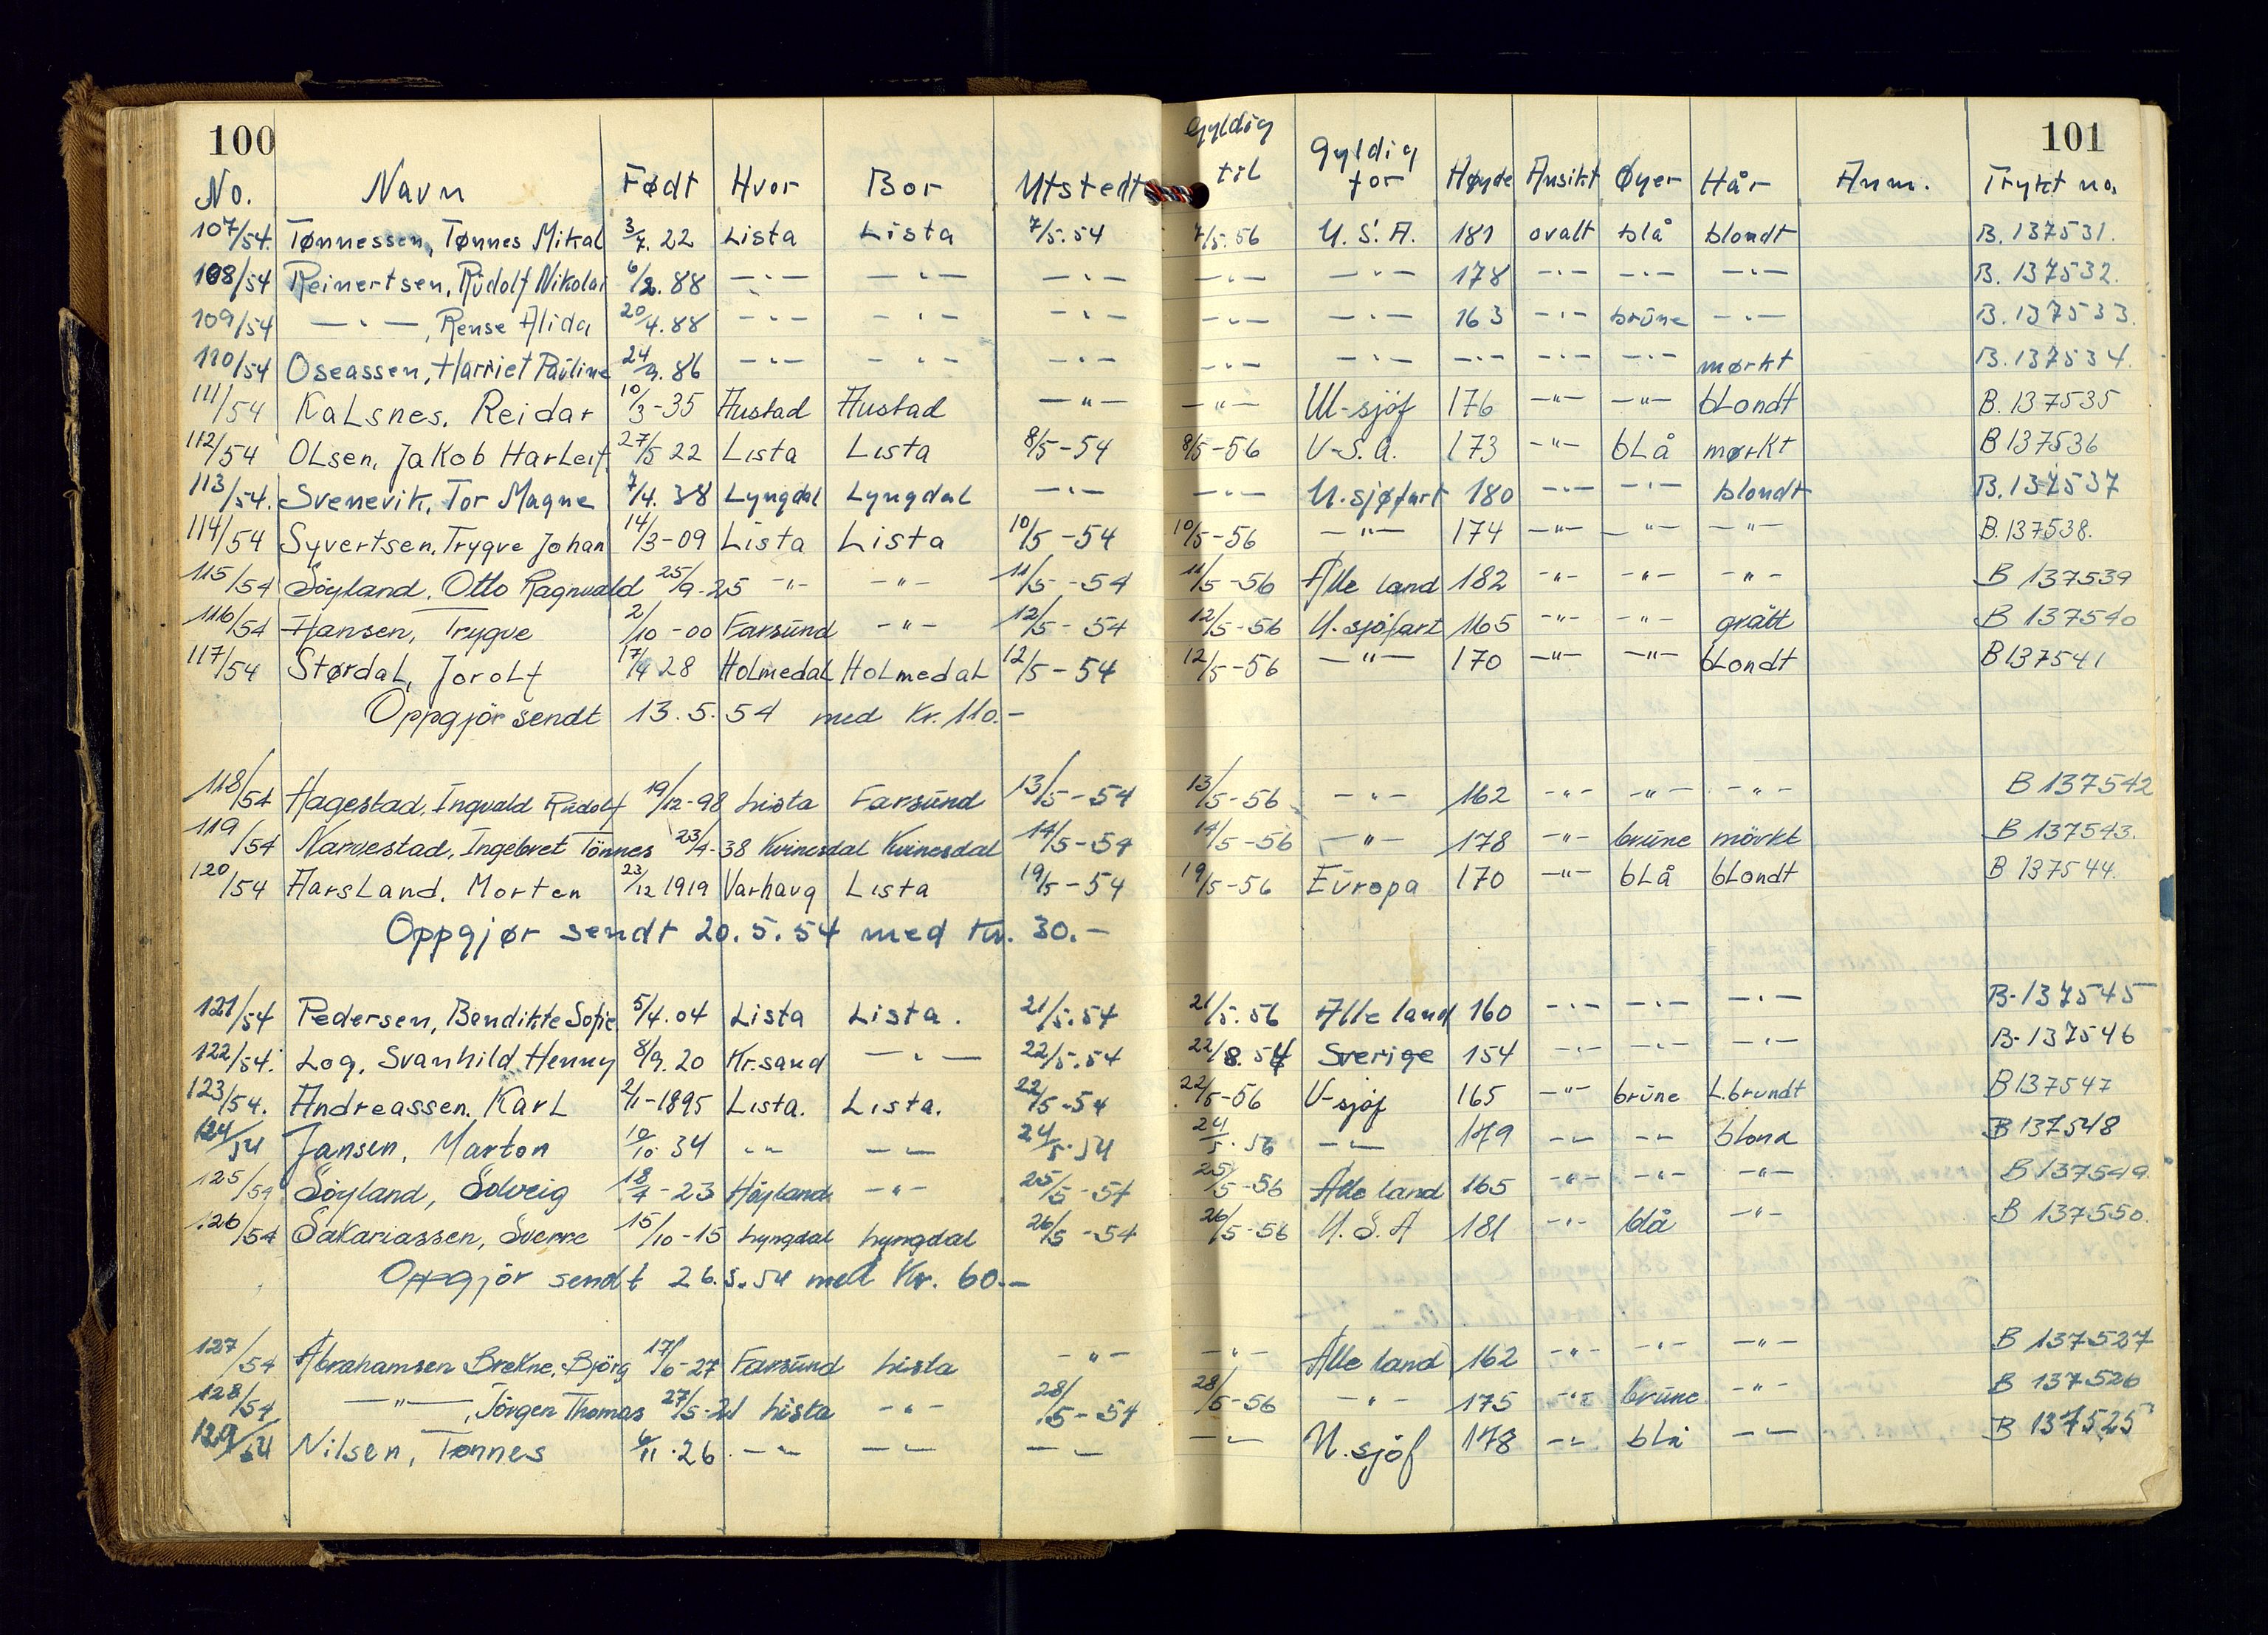 100 101
No. Navn Født Hvor Bor Utstedt Gyldig til Gyldig for Høyde Ansikt Øyer Hår Anm. Trykt no.
107/54. Tønnessen, Tønnes Mikal 3/7. 22 Lista Lista 7/5.54 7/5.56 U.S.A. 181 ovalt blå blondt B.137531.
108/54 Reinertsen, Rudolf Nikolai 6/2. 88 —"— —"— —"— —"— —"— 178 —"— —"— —"— B.137532.
109/54 —"—, Rense Alida 20/4. 88 —"— —"— —"— —"— —"— 163 —"— brune —"— B.137533.
110/54 Oseassen, Harriet Pauline 24/9. 86 —"— —"— —"— —"— —"— —"— —"— —"— mørkt B.137534.
111/54 Kalsnes, Reidar 10/3-35 Hustad Hustad —"— —"— U-sjöf 176 —"— —"— blondt B.137535
112/54 Olsen, Jakob Harleif 27/5 22 Lista Lista 8/5-54 8/5-56 U-S.A. 173 —"— blå mørkt B137536
113/54. Svenevik, Tor Magne 7/4. 38 Lyngdal Lyngdal —"— —"— U.sjøfart 180 —"— —"— blondt B.137537
114/54 Syvertsen, Trygve Johan 14/3-09 Lista Lista 10/5-54 10/5-56 —"— 174 —"— —"— —"— B.137538.
115/54 Söyland, Otto Ragnvald 25/9-25 —"— —"— 11/5-54 11/5-56 Alle land 182 —"— —"— —"— B 137539
116/54 Hansen, Trygve 2/10-00 Farsund —"— 12/5-54 12/5-56 U.sjöfart 165 —"— —"— grått B 137540
117/54 Størdal, Jorolf 17/4 28 Holmedal Holmedal 12/5-54 12/5-56 —"— 170 —"— —"— blondt B137541
Oppgjör sendt 13.5.54 med Kr.110.-
118/54 Hagestad, Ingvald Rudolf 19/12-98 Lista Farsund 13/5-54 13/5-56 —"— 162 —"— —"— —"— B 137542
119/54 Narvestad, Ingebret Tönnes 23/4-38 Kvinesdal Kvinesdal 14/5-54 14/5-56 —"— 178 —"— brune mörkt B 137543.
120/54 Aarsland, Morten 23/12 1919 Varhaug Lista 19/5-54 19/5-56 Europa 170 —"— blå blondt B 137544.
Oppgjør sendt 20.5.54 med Kr. 30.-
121/54 Pedersen, Bendikte Sofie 5/4.04 Lista Lista. 21/5.54 21/5.56 Alle land 160 —"— —"— —"— B-137545
122/54. Log, Svanhild Henny 8/9. 20 Kr.sand —"— 22/5.54 22/8.54 Sverige 154 —"— —"— —"— B-137546
123/54. Andreassen, Karl 2/1-1895 Lista. Lista. 22/5-54 22/5-56 U-sjöf 165 —"— brune L.brundt B137547
124/54 Jansen, Marton 10/10 34 —"— —"— 24/5.54 24/5.56 —"— 179 —"— —"— blond B 137548
125/54 Söyland, Solveig 18/7-23 Höyland —"— 25/5-54 25/5-56 Alle land 165 —"— —"— —"— B 137549.
126/54 Sakariassen, Sverre 15/10-15 Lyngdal Lyngdal 26/5-54 26/5-56 U.S.A 181 —"— blå —"— B 137550.
Oppgjör sendt 26.5.54 med Kr. 60.-
127/54 Abrahamsen Brekne, Björg 17/6-27 Farsund Lista —"— —"— Alle land 162 —"— —"— —"— B 137527
128/54 —"—, Jörgen Thomas 27/5-21 Lista —"— 28/5-54 28/5-56 —"— 175 —"— brune —"— B 137526
129/54 Nilsen, Tønnes 6/11.26 —"— —"— —"— —"— U.sjöf 178 —"— blå —"— B 137525